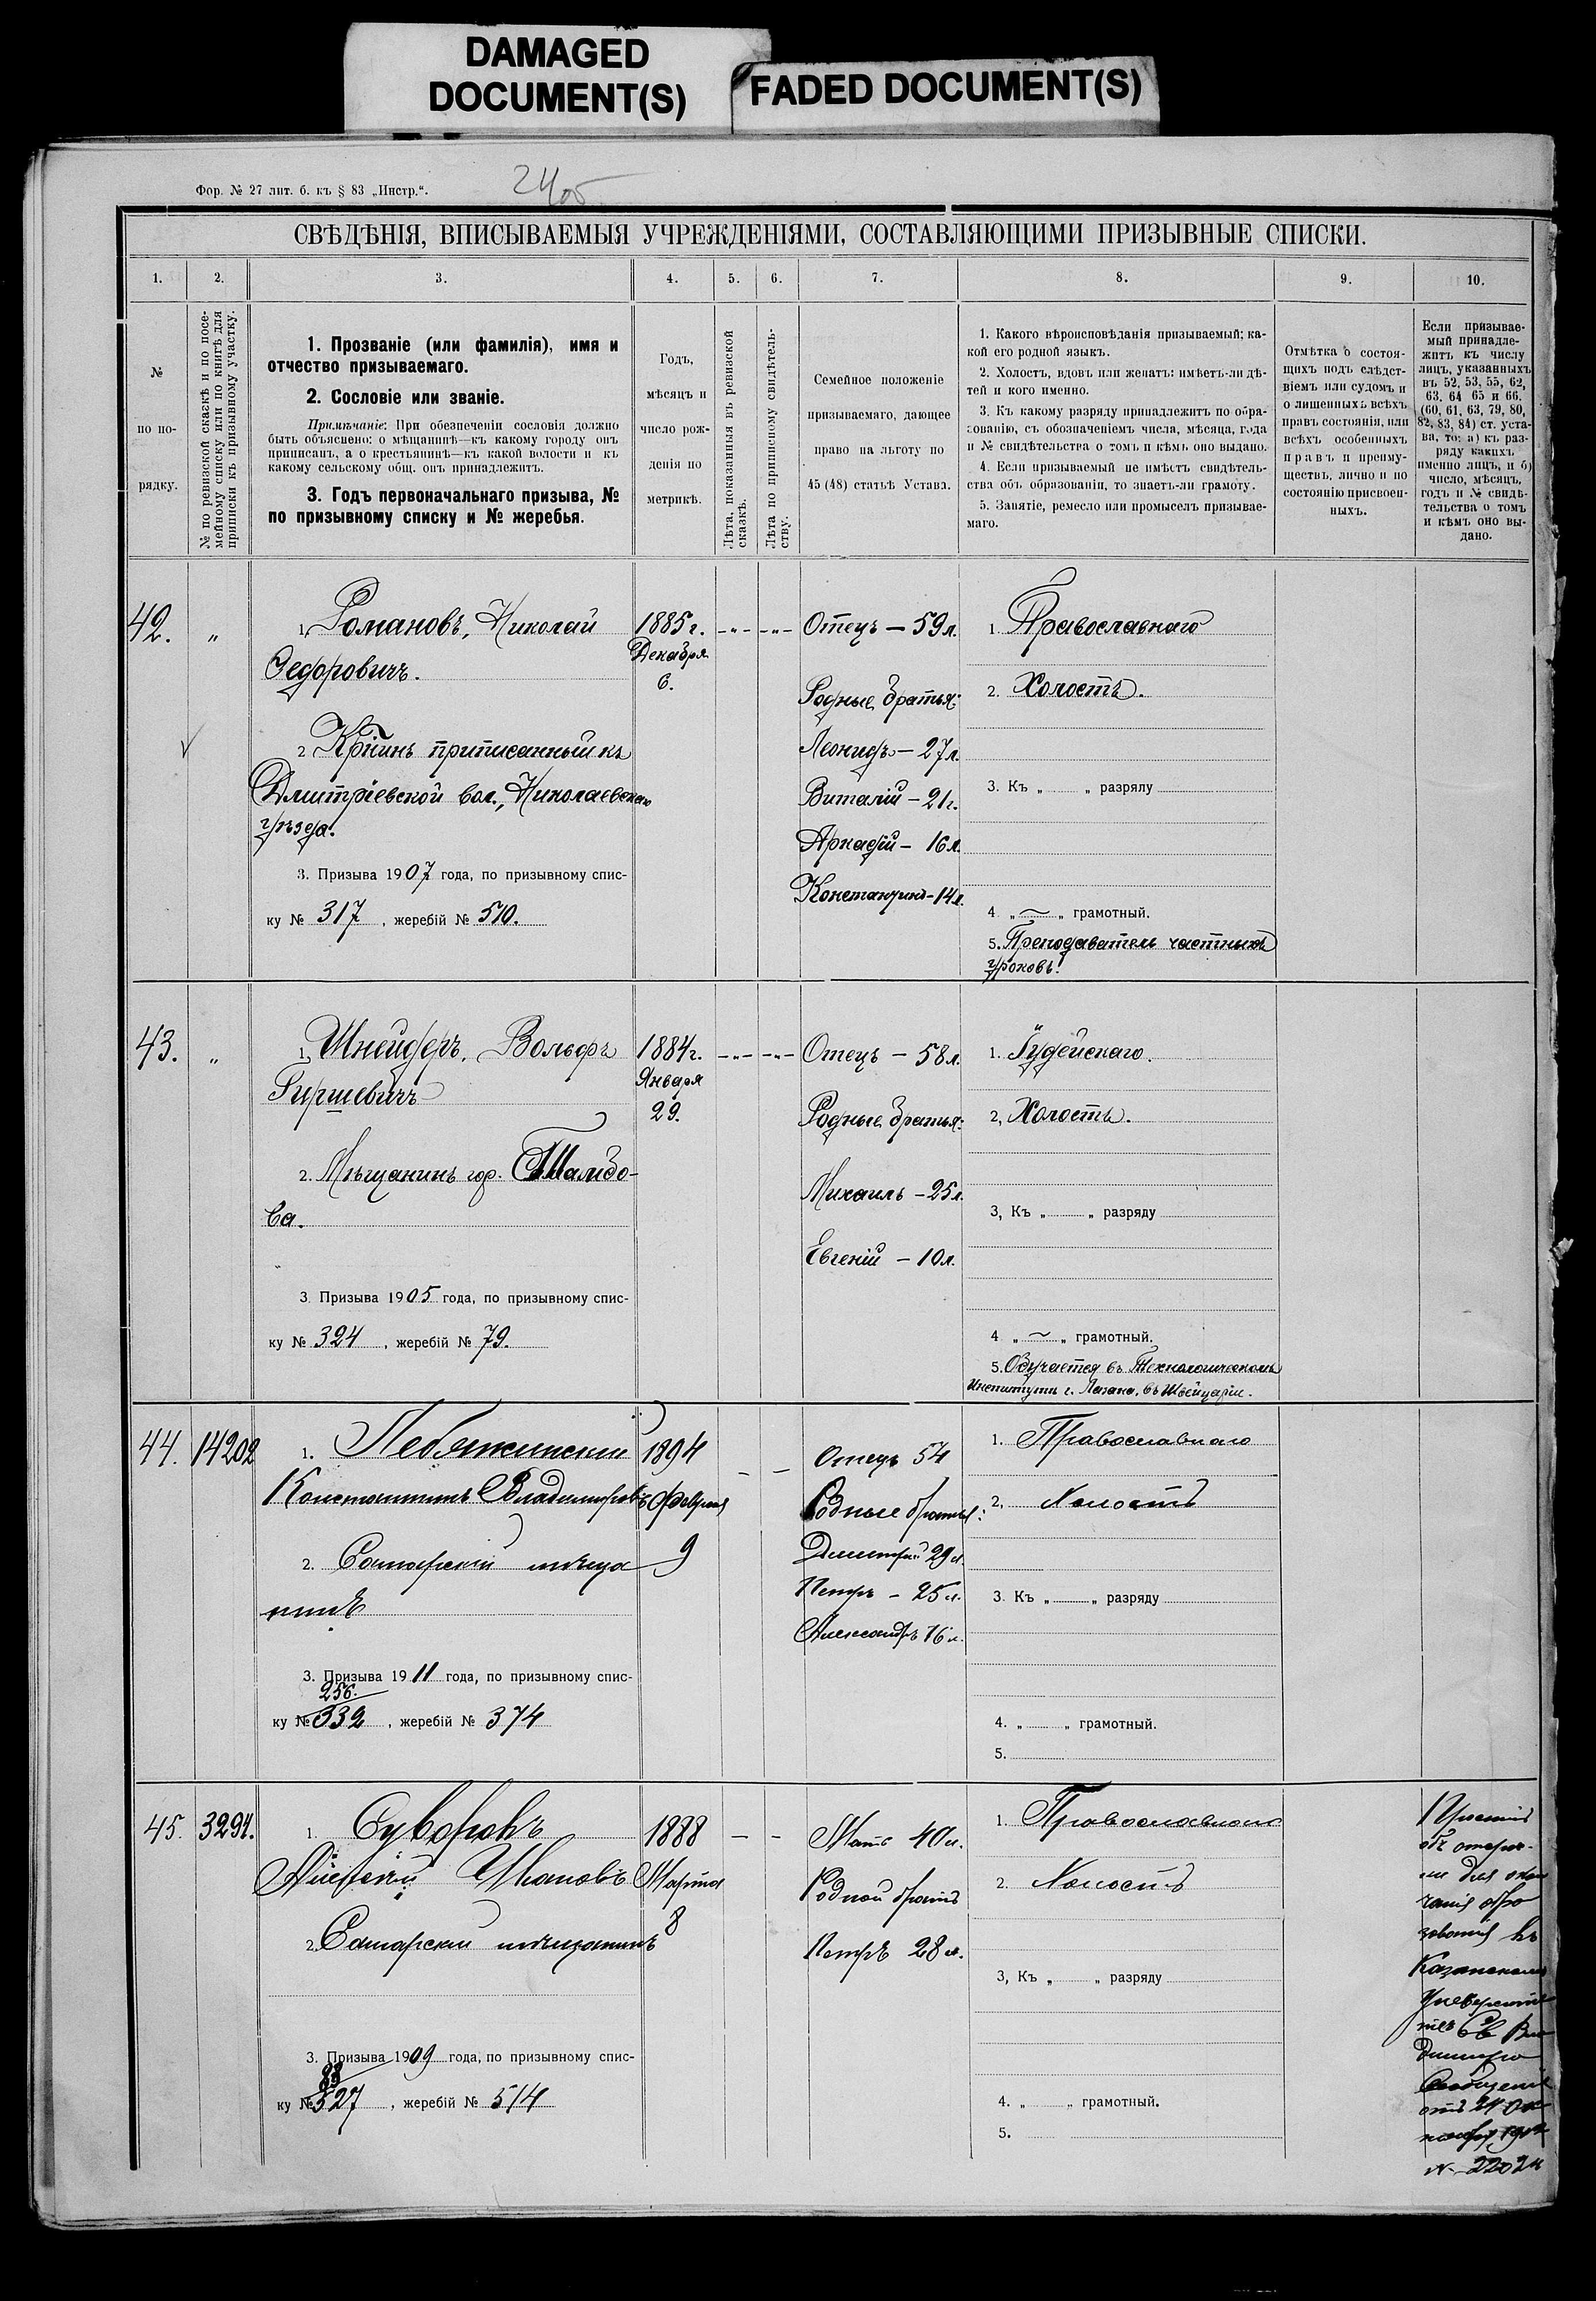 DAMAGED
DOCUMENT(S)
FADED DOCUMENT(S)
Фор. № 27 лит. б. къ § 83 „Инстр.“.
СВѢДѢНІЯ, ВПИСЫВАЕМЫЯ УЧРЕЖДЕНІЯМИ, СОСТАВЛЯЮЩИМИ ПРИЗЫВНЫЕ СПИСКИ.
1. 2. 3. 4. 5. 6. 7. 8. 9. 10.
№
по по-
рядку.
№ по ревизской сказкѣ и по посе-
мейному списку или по книгѣ для
приписки къ призывному участку.
1. Прозваніе (или фамилія), имя и
отчество призываемаго.
2. Сословіе или званіе.
Примѣчаніе: При обезпеченіи сословія должно
быть объяснено: о мѣщанинѣ—къ какому городу онъ
приписанъ, а о крестьянинѣ—къ какой волости и къ
какому сельскому общ. онъ принадлежитъ.
3. Годъ первоначальнаго призыва, №
по призывному списку и № жеребья.
Годъ,
мѣсяцъ и
число рож-
денія по
метрикѣ.
Лѣта, показанныя въ ревизской
сказкѣ.
Лѣта по приписному свидѣтель-
ству.
Семейное положеніе
призываемаго, дающее
право на льготу по
45 (48) статьѣ Устава.
1. Какого вѣроисповѣданія призываемый; ка-
кой его родной языкъ.
2. Холостъ, вдовъ или женатъ: имѣетъ-ли дѣ-
тей и кого именно.
3. Къ какому разряду принадлежитъ по обра-
зованію, съ обозначеніемъ числа, мѣсяца, года
и № свидѣтельства о томъ и кѣмъ оно выдано.
4. Если призываемый не имѣетъ свидѣтель-
ства объ образованіи, то знаетъ-ли грамоту.
5. Занятіе, ремесло или промыселъ призывае-
маго.
Отмѣтка о состоя-
щихъ подъ слѣдст-
віемъ или судомъ и
о лишенныхъ всѣхъ
правъ состоянія, или
всѣхъ особенныхъ
правъ и преиму-
ществъ, лично и по
состоянію присвоен-
ныхъ.
Если призывае-
мый принадле-
житъ къ числу
лицъ, указанныхъ
въ 52, 53, 55, 62,
63, 64 65 и 66.
(60, 61, 63, 79, 80,
82, 83, 84) ст. уста-
ва, то: а) къ раз-
ряду какихъ
именно лицъ, и б)
число, мѣсяцъ,
годъ и № свидѣ-
тельства о томъ
и кѣмъ оно вы-
дано.
42. „
1. Романовъ, Николай
Федоровичъ.
2 Кр-нинъ приписанный къ
Дмитріевской вол., Николаевскаго
уѣзда.
3. Призыва 1907 года, по призывному спис-
ку № 317, жеребій № 510.
1885 г.
Декабря
6.
Отецъ — 59 л.
Родные братья:
Леонидъ — 27 л.
Виталій — 21 г.
Аркадій — 16 л.
Константинъ - 14 л.
1. Православнаго
2. Холостъ.
3. Къ „ „ разряду
4 „ „ грамотный.
5. Преподаватель частныхъ
уроковъ.
43. „
1. Шнейдеръ, Вольфъ
Гиршевичъ
2. Мѣщанинъ гор. Тамбо-
ва.
3. Призыва 1905 года, по призывному спис-
ку № 324, жеребій № 79.
1884 г.
Января
29.
Отецъ — 58 л.
Родные братья:
Михаилъ — 25 л.
Евгеній — 10 л.
1. Іудейскаго.
2, Холостъ.
3, Къ „ „ разряду
4 „ „ грамотный.
5. Обучается въ Технологическомъ
Институтѣ г. Лозана, въ Швейцаріи.
44. 14202
1. Лебяжинскій
Константинъ Владиміровъ
2. Самарскій мѣща
нинъ
3. Призыва 1911 года, по призывному спис-
256.
ку № 332, жеребій № 374
1894
Февраля
9
Отецъ 54
Родные братья:
Дмитрій 29 л.
Петръ — 25 л.
Александръ 16 л.
1. Православнаго
2, Холостъ
3. Къ „ „ разряду
4. „ „ грамотный.
5.
45. 3291.
1. Суворовъ
Алексѣй Ивановъ
2. Самарскій мѣщанинъ
3. Призыва 1909 года, по призывному спис-
83
ку № 527, жеребій № 514
1888
Марта
8
Мать 40 л.
Родной братъ
Петръ 28 л.
1. Православнаго
2. Холостъ
3, Къ „ „ разряду
4. „ „ грамотный.
5.
объ отсроч-
для окон
чанія обра
зованія въ
Казанскомъ
Университе
Св Вла
диміра
Сообщеніе
отъ 24
№ 22024